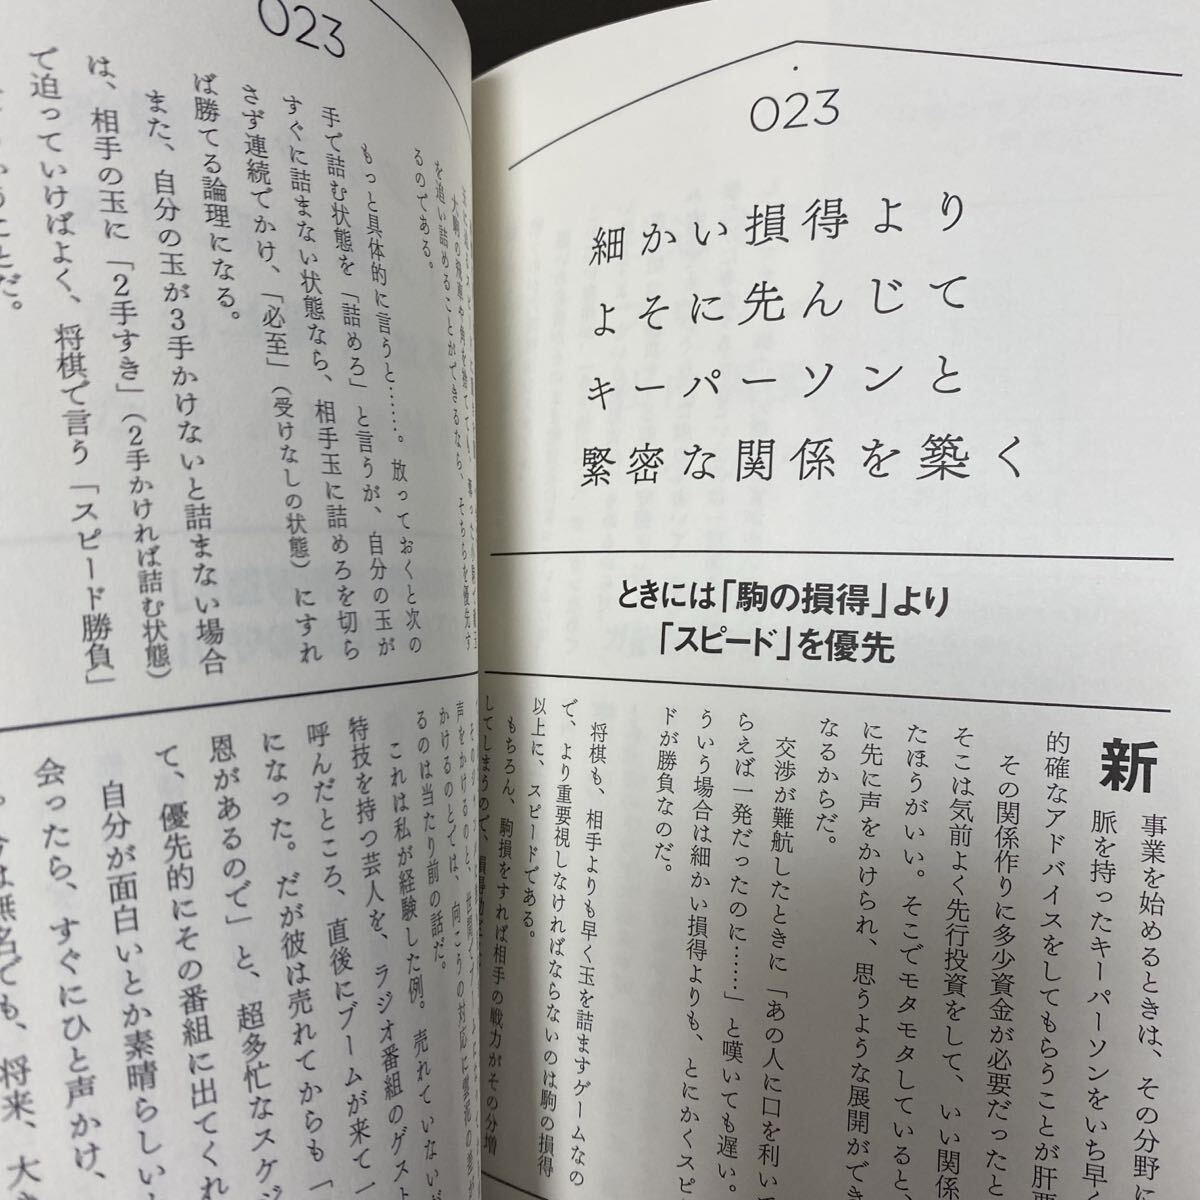 023
細かい損得より
よそに先んじて
キーパーソンと
緊密な関係を築く
ときには「駒の損得」より
「スピード」を優先
新
事業を始めるときは、その分野に
脈を持ったキーパーソンをいち早く
的確なアドバイスをしてもらうことが肝要
その関係作りに多少資金が必要だったと
そこは気前よく先行投資をして、いい関係
たほうがいい。そこでモタモタしていると、
に先に声をかけられ、思うような展開ができ
なるからだ。
交渉が難航したときに「あの人に口を利いて
らえば一発だったのに……」と嘆いても遅い。
ういう場合は細かい損得よりも、とにかくスピ
ドが勝負なのだ。
将棋も、相手よりも早く玉を詰ますゲームなの
で、より重要視しなければならないのは駒の損得
以上に、スピードである。
もちろん、駒損をすれば相手の戦力がその分増
してしまうので、
023
大駒の飛車や角を捨てても、
を追い詰めることができるなら、そちらを優先す
るのである。
もっと具体的に言うと……。放っておくと次の
手で詰む状態を「詰めろ」と言うが、自分の玉が
すぐに詰まない状態なら、相手玉に詰めろを切ら
さず連続でかけ、「必至」（受けなしの状態）にすれ
ば勝てる論理になる。
また、自分の玉が3手かけないと詰まない場合
は、相手の玉に「2手すき」（2手かければ詰む状態）
で迫っていけばよく、将棋で言う「スピード勝負」
うことだ。
声をかけるのと、世間でブーム
かけるのとでは、向こうの対応に雲泥の差が
るのは当たり前の話だ。
これは私が経験した例。売れていない
特技を持つ芸人を、ラジオ番組のゲスト
呼んだところ、直後にブームが来て一
になった。だが彼は売れてからも「
恩があるので」と、超多忙なスケジ
て、優先的にその番組に出てくれ
自分が面白いとか素晴らしい
会ったら、すぐにひと声かけ、
今は無名でも、将来、大